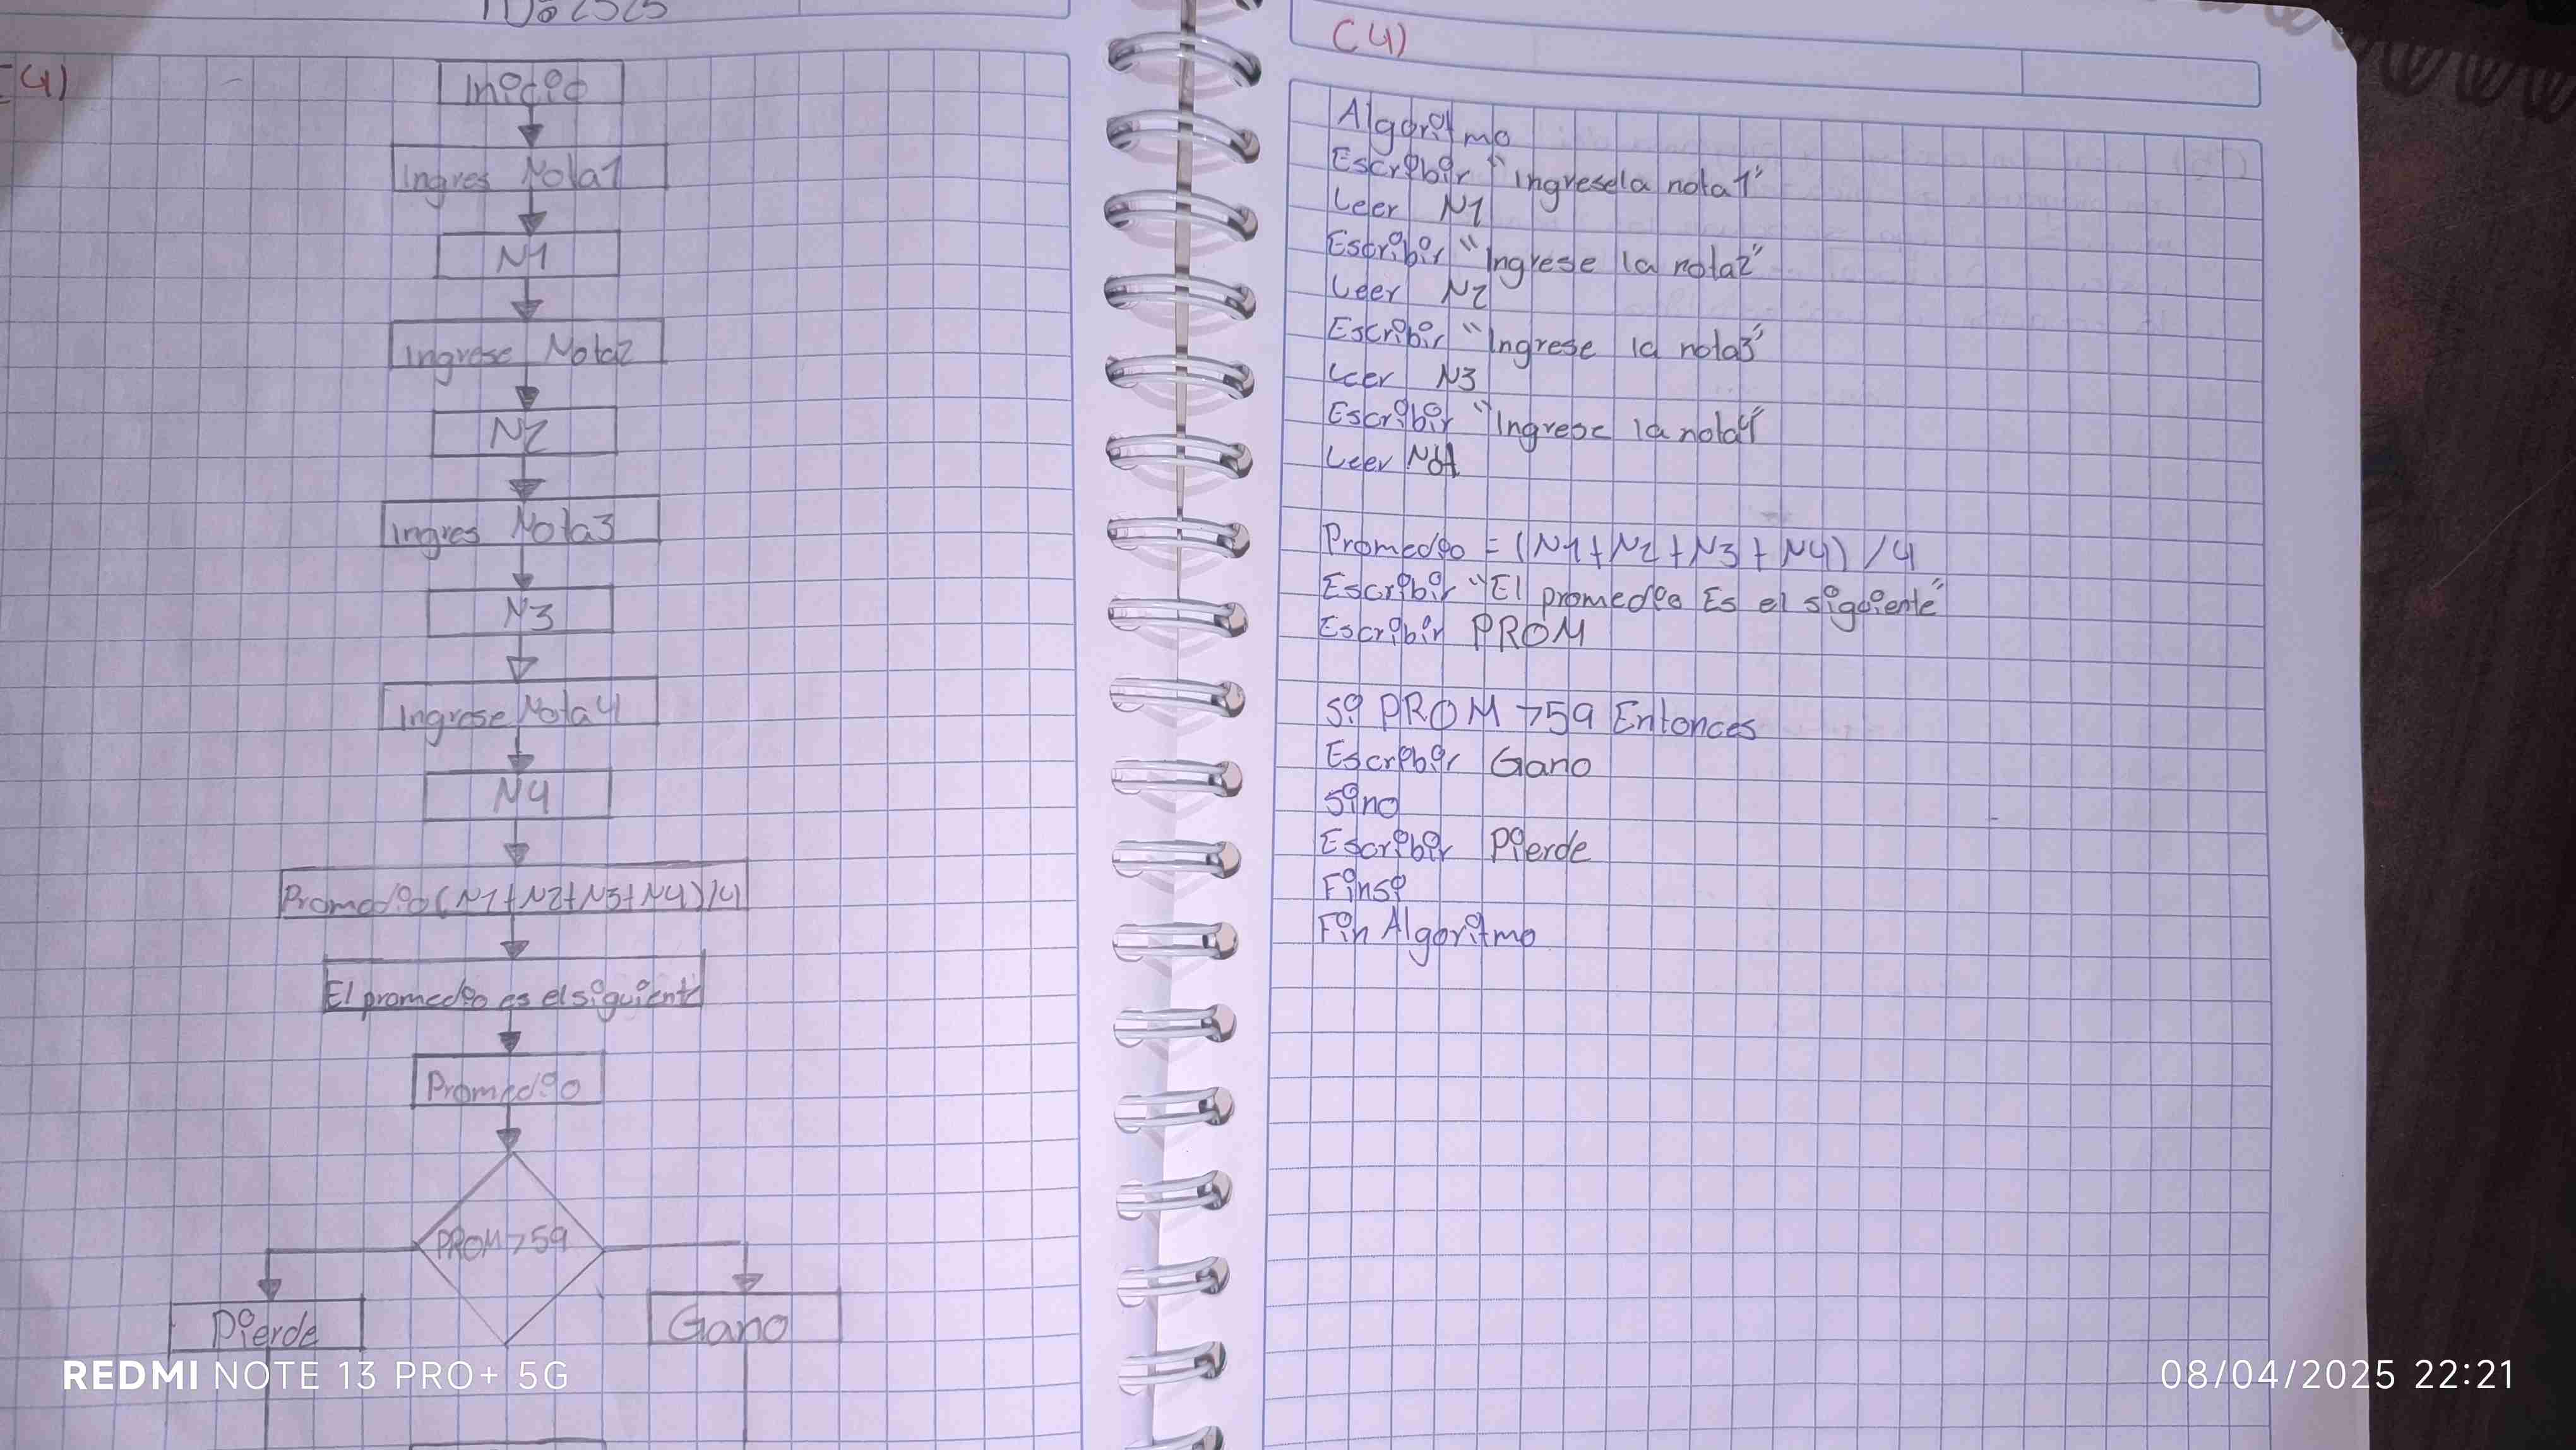 C4)
Inicio
Ingres Nota1
N1
Ingrese Nota2
N2
Ingres Nota3
N3
Ingrese Nota4
N4
Promedio(N1+N2+N3+N4)/4
El promedio es el siguiente
Promedio
PROM >59
Pierde
Gano
C4)
Algoritmo
Escribir "ingresela nota1"
Leer N1
Escribir "Ingrese la nota2"
Leer N2
Escribir "Ingrese la nota3"
Leer N3
Escribir "Ingrese la nota4"
Leer
Promedio = (N1+N2+N3+N4) /4
Escribir "El promedio Es el siguiente"
Escribir PROM
Si PROM >59 Entonces
Escribir Gano
Sino
Escribir Pierde
Finsi
Fin Algoritmo
REDMI NOTE 13 PRO+ 5G
08/04/2025 22:21